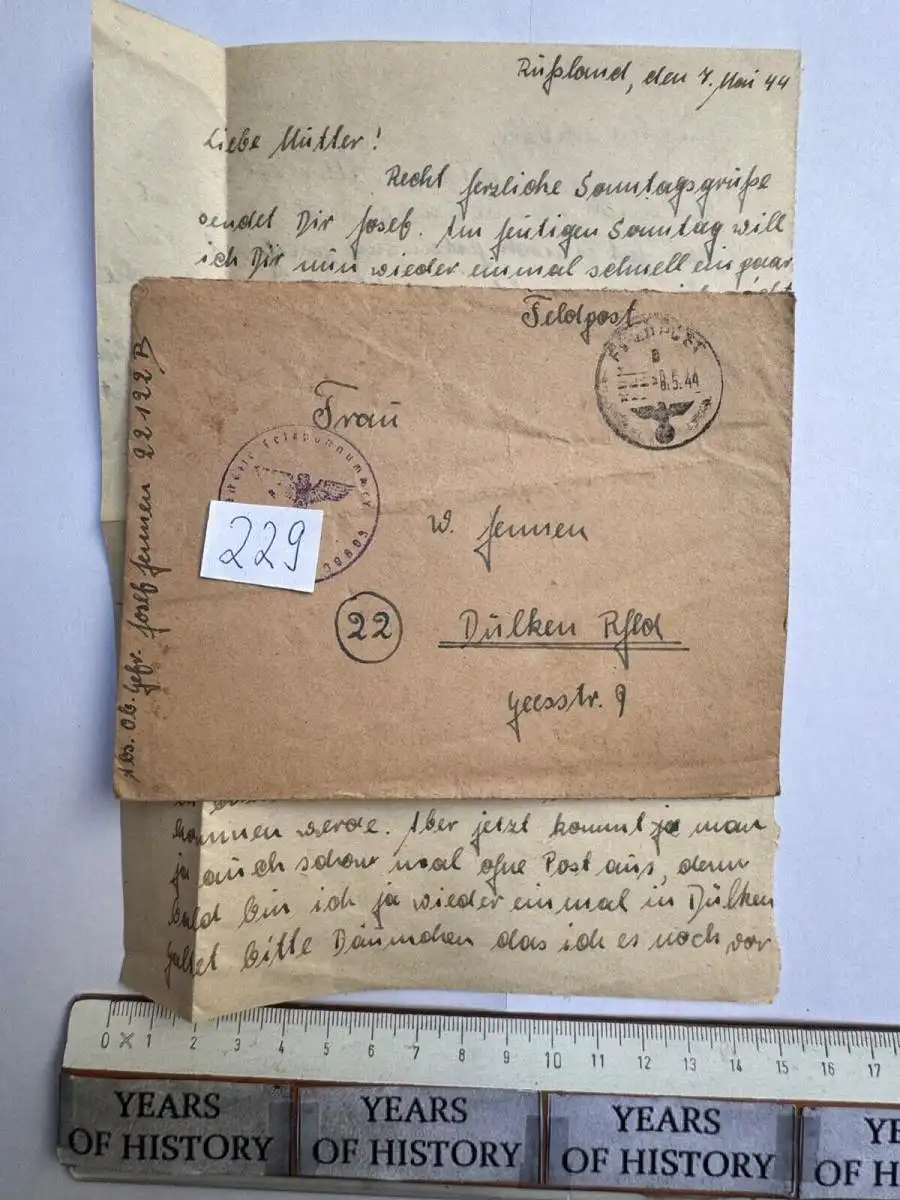 Rußland, den 7. Mai 44
Liebe Mutter!
Recht herzliche Sonntagsgrüße
sendet Dir Josef. Am heutigen Sonntag will
ich Dir nun wieder einmal schnell ein paar
Feldpost
FELDPOST
B
8.5.44
Frau
Feldpostnummer
229
W. Jennen
22
Dülken Rhld
Geesstr. 9
Abs. Ob. Gefr. Josef Jennen 22122 B
kommen werde. Aber jetzt kommt ja man
ja auch schon mal ohne Post aus, denn
bald bin ich ja wieder einmal in Dülken
haltet bitte Däumchen das ich es noch vor
0 1 2 3 4 5 6 7 8 9 10 11 12 13 14 15 16 17
YEARS OF HISTORY
YEARS OF HISTORY
YEARS OF HISTORY
YE
OF H